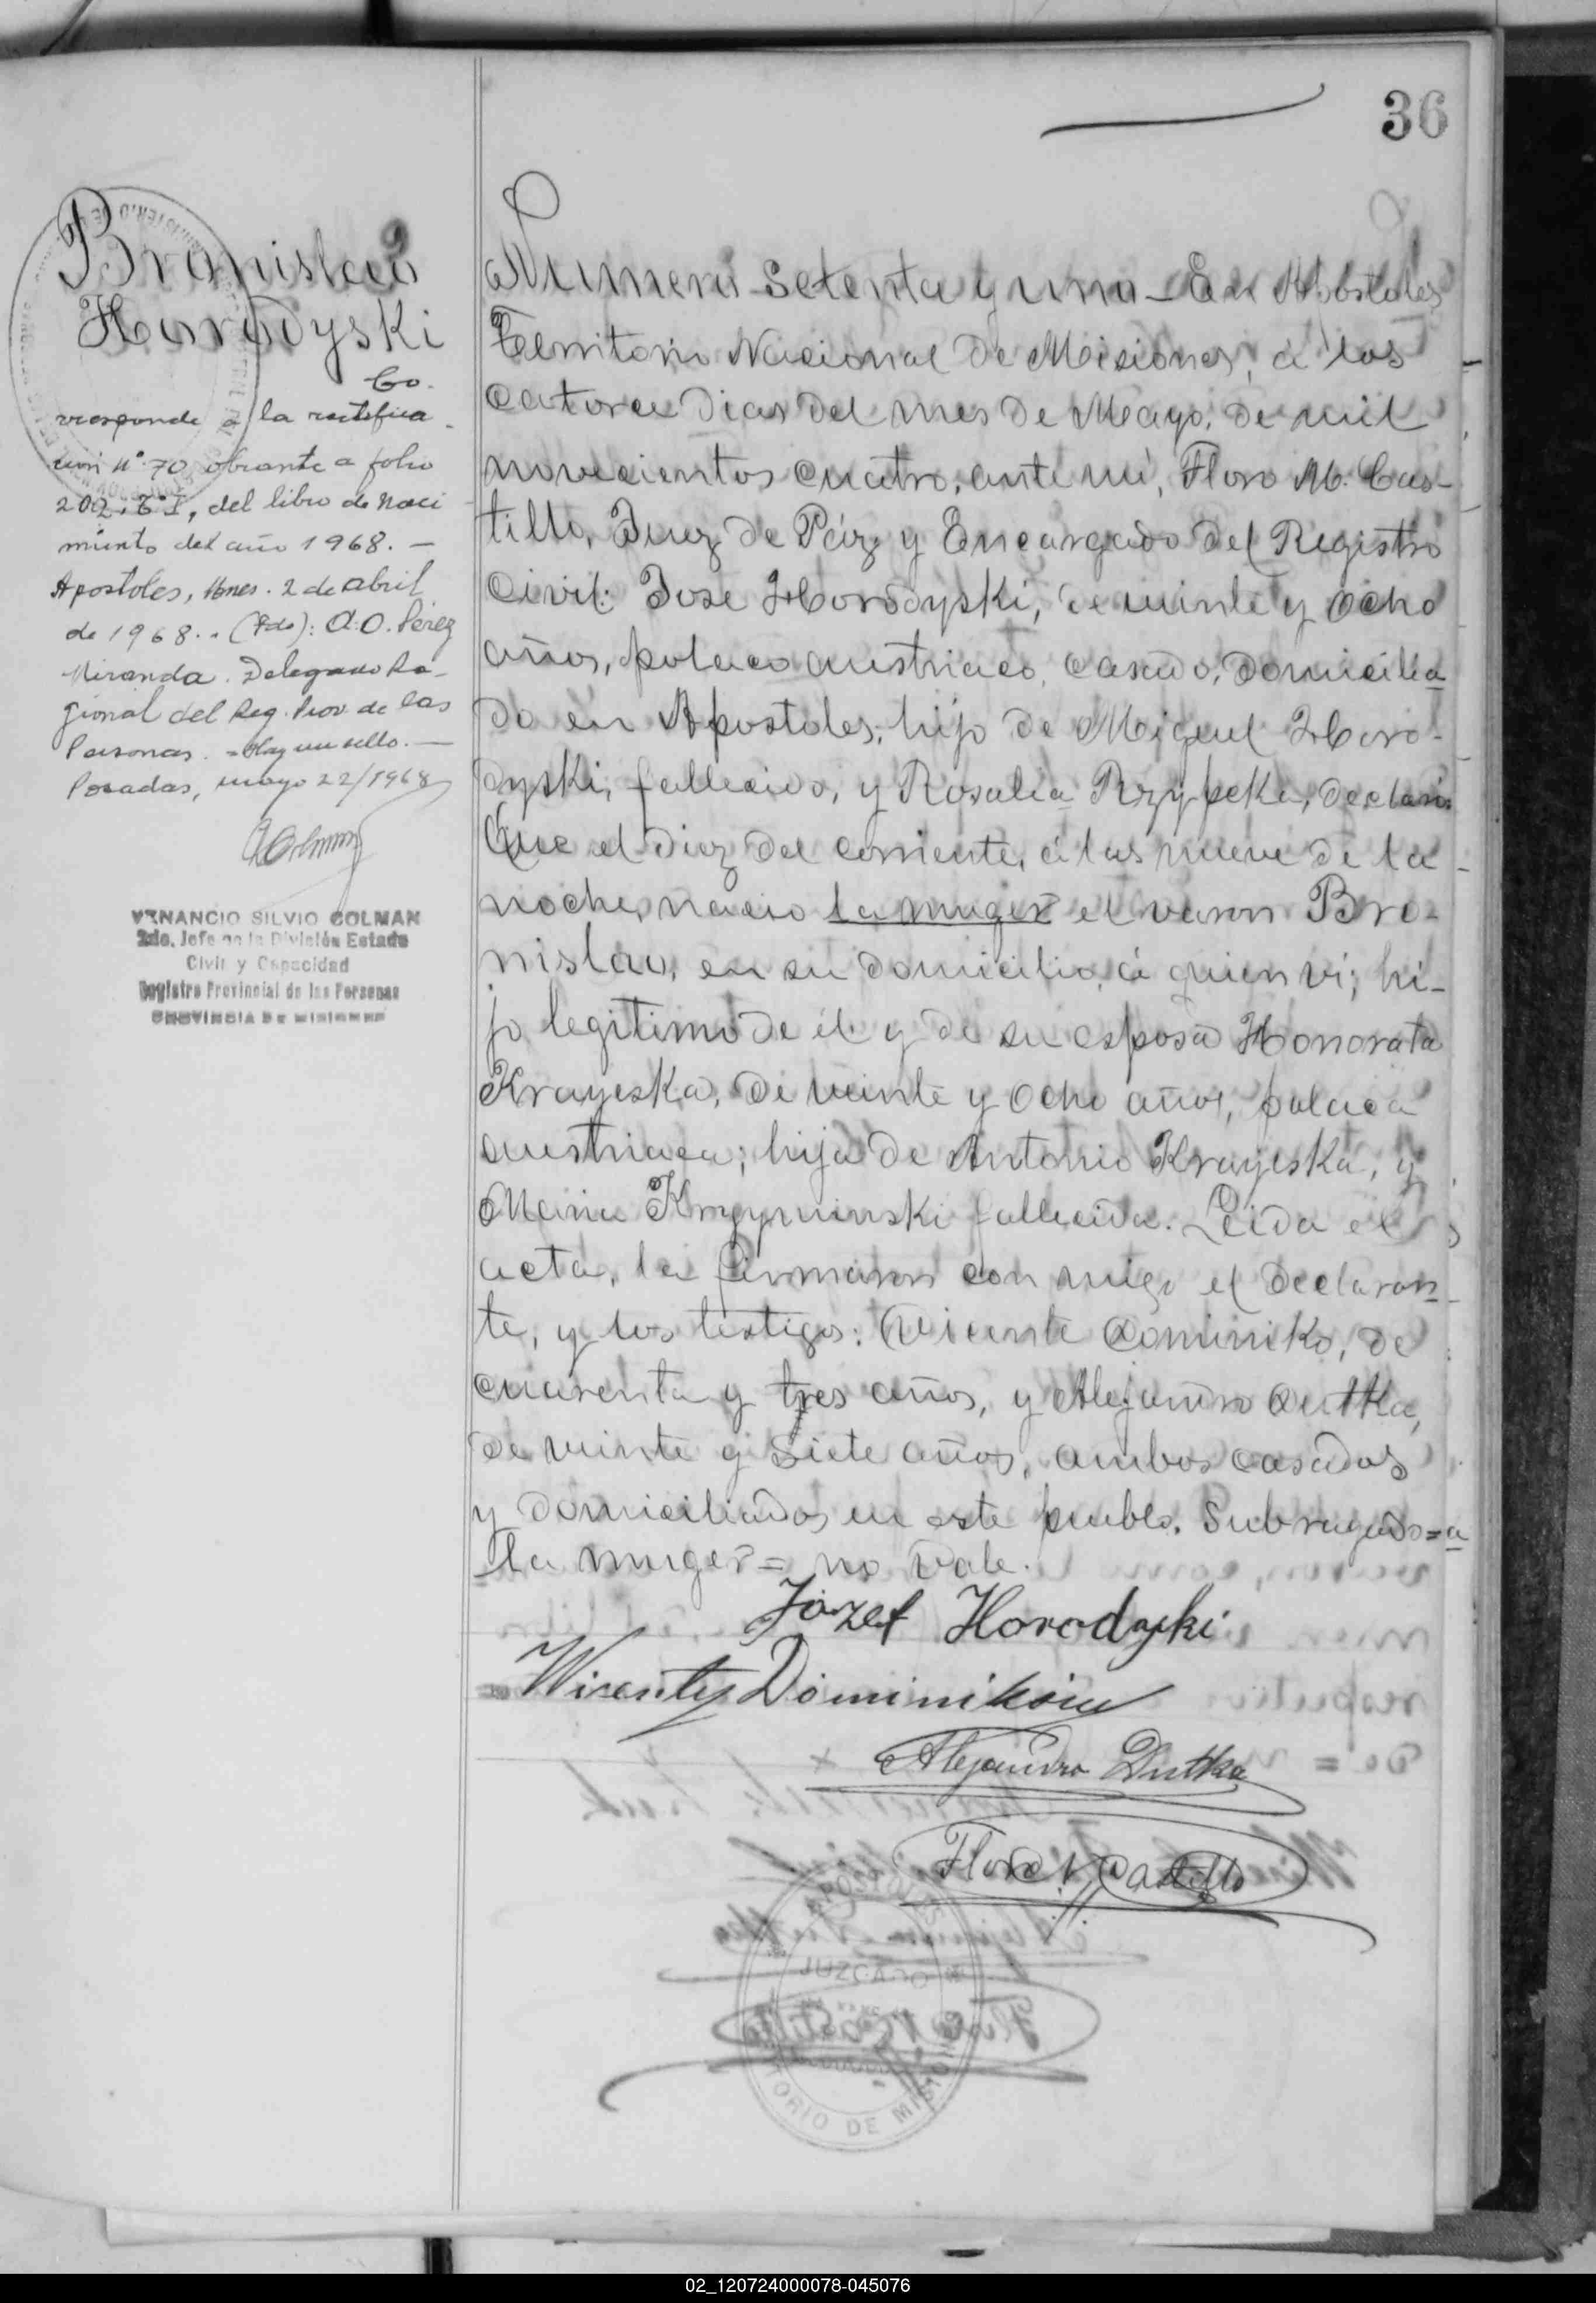 36
Bronislao
Horodyski
Co-
rresponde a la rectifica
ción nº 70 obrante a folio
202, Tº I, del libro de naci
miento del año 1968. —
Apostoles, Mnes. 2 de abril
de 1968.. (Fdo): A.O. Pérez
Miranda. Delegado Re-
gional del Reg. Prov. de las
Personas. = Hay un sello. —
Posadas, mayo 22/1968
VENANCIO SILVIO COLMAN
2do. Jefe de la División Estado
Civil y Capacidad
Registro Provincial de las Personas
PROVINCIA DE MISIONES
Numero Setenta y uno — En Apostoles
Territorio Nacional de Misiones, á los
catorce dias del mes de Mayo, de mil
novecientos cuatro, ante mi, Floro M. Cas-
tillo, Juez de Páz y Encargado del Registro
Civil: Jose Horodyski, de veinte y ocho
años, polaco austriaco, casado, domicilia
do en Apostoles, hijo de Miguel Horo-
dyski, fallecido, y Rosalia Rzypeka, declaró
Que el diez del corriente, á las nueve de la
noche, nacio la muger el varon Bro-
nislao, en su domicilio, á quien vi; hi-
jo legitimo de él y de su esposa Honorata
Krayeska, de veinte y ocho años, polaca
austriaca; hija de Antonio Krayeska, y
Maria fallecida. Leida el
acta, la firmaron con migo el declaran-
te, y los testigos: Vicente Dominiko, de
cuarenta y tres años, y Alejandro Dutka,
de veinte y siete años, ambos casados
y domiciliados en este pueblo. Subrayado=a
la muger= no vale.
Józef Horodyski
Wicenty Dominików
Alejandro Dutka
Floro M. Castillo
APOSTOLES
JUZGADO
TERRITORIO DE MISIONES
02_120724000078-045076